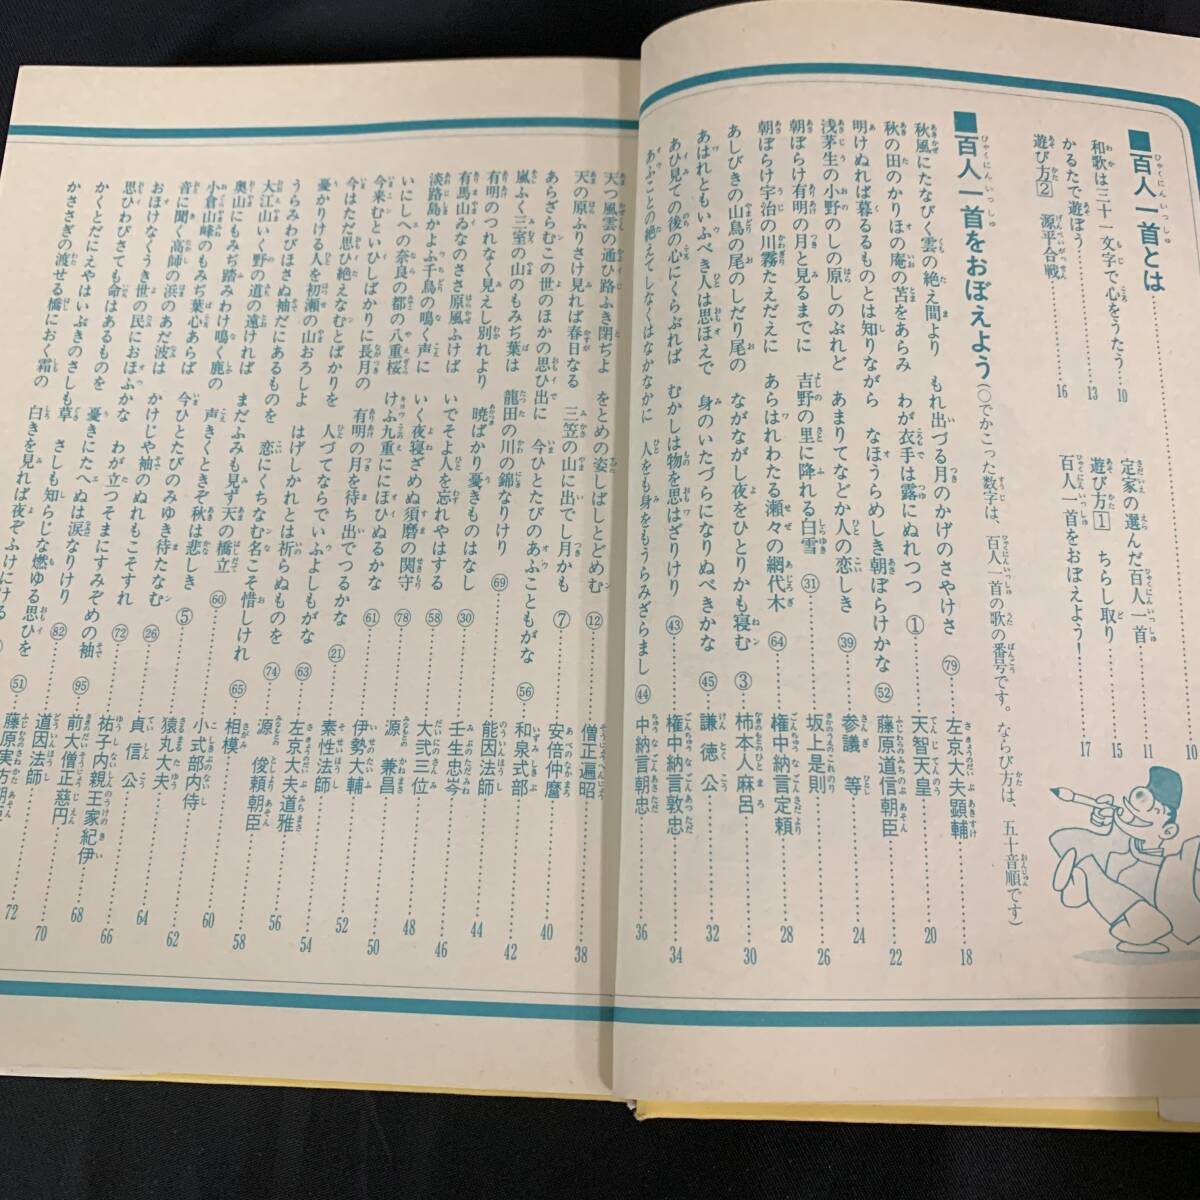 ■百人一首とは……10
和歌は三十一文字で心をうたう……10
定家の選んだ百人一首……11
かるたで遊ぼう……13
遊び方1 ちらし取り……15
遊び方2 源平合戦……16
百人一首をおぼえよう!……17
■百人一首をおぼえよう(○でかこった数字は、百人一首の歌の番号です。ならび方は、五十音順です)
秋風にたなびく雲の絶え間より もれ出づる月のかげのさやけさ ㊆79……左京大夫顕輔……18
秋の田のかりほの庵の苫をあらみ わが衣手は露にぬれつつ ①……天智天皇……20
明けぬれば暮るるものとは知りながら なほうらめしき朝ぼらけかな 52……藤原道信朝臣……22
浅茅生の小野のしの原しのぶれど あまりてなどか人の恋しき ㊴……参議 等……24
朝ぼらけ有明の月と見るまでに 吉野の里に降れる白雪 ㉛……坂上是則……26
朝ぼらけ宇治の川霧たえだえに あらはれわたる瀬々の網代木 64……権中納言定頼……28
あしびきの山鳥の尾のしだり尾の ながながし夜をひとりかも寝む ③……柿本人麻呂……30
あはれともいふべき人は思ほえで 身のいたづらになりぬべきかな ㊺……謙徳公……32
あひ見ての後の心にくらぶれば むかしは物を思はざりけり ㊸……権中納言敦忠……34
あふことの絶えてしなくはなかなかに 人をも身をもうらみざらまし ㊹……中納言朝忠……36
天つ風雲の通ひ路ふき閉ぢよ をとめの姿しばしとどめむ ⑫……僧正遍昭……38
天の原ふりさけ見れば春日なる 三笠の山に出でし月かも ⑦……安倍仲麿……40
あらざらむこの世のほかの思ひ出に 今ひとたびのあふこともがな 56……和泉式部……42
嵐ふく三室の山のもみぢ葉は 龍田の川の錦なりけり 69……能因法師……44
有明のつれなく見えし別れより 暁ばかり憂きものはなし ㉚……壬生忠岑……46
有馬山ゐなのささ原風ふけば いでそよ人を忘れやはする 58……大弐三位……48
淡路島かよふ千鳥の鳴く声に いく夜寝ざめぬ須磨の関守 78……源 兼昌……50
いにしへの奈良の都の八重桜 けふ九重ににほひぬるかな 61……伊勢大輔……52
今来むといひしばかりに長月の 有明の月を待ち出でつるかな ㉑……素性法師……54
今はただ思ひ絶えなむとばかりを 人づてならでいふよしもがな 63……左京大夫道雅……56
憂かりける人を初瀬の山おろしよ はげしかれとは祈らぬものを 74……源 俊頼朝臣……58
うらみわびほさぬ袖だにあるものを 恋にくちなむ名こそ惜しけれ 65……相模……60
大江山いく野の道の遠ければ まだふみも見ず天の橋立 60……小式部内侍……62
奥山にもみぢ踏みわけ鳴く鹿の 声きくときぞ秋は悲しき ⑤……猿丸大夫……64
小倉山峰のもみぢ葉心あらば 今ひとたびのみゆき待たなむ ㉖……貞信公……66
音に聞く高師の浜のあだ波は かけじや袖のぬれもこそすれ 72……祐子内親王家紀伊……68
おほけなくうき世の民におほふかな わが立つそまにすみぞめの袖 95……前大僧正慈円……70
思ひわびさても命はあるものを 憂きにたへぬは涙なりけり 82……道因法師……72
かくとだにえやはいぶきのさしも草 さしも知らじな燃ゆる思ひを 51……藤原実方朝臣
かささぎの渡せる橋におく霜の 白きを見れば夜ぞふけにける